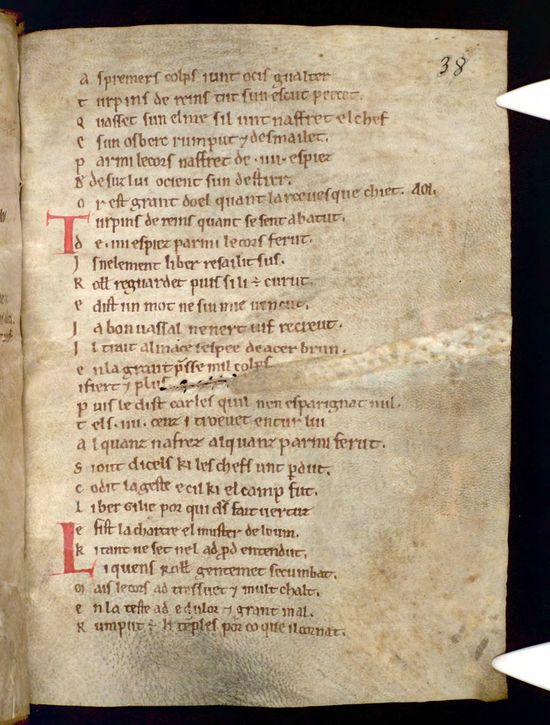 38
A spremers colps i unt ocis gualter
T urpins de reins tut sun escut percet.
Q uasset sun elme si l unt naffret el chef
E sun osberc rumput ⁊ desmailet.
P armi le cors naffret de .iiii. espiez
D desuz lui ocient sun destrer.
O r est grant doel quant larceuesque chiet. AOI.
T urpins de reins quant se sent abatut.
D e .iiii. espiez parmi le cors ferut.
I snelement li ber resailit sus.
R oll reguardet puis si li est curut.
E dist un mot ne sui mie vencut.
J a bon uassal nen ert uif recreut.
I l trait almace sespee de acer brun.
E n la grant presse mil colps
i fiert ⁊ plus
P uis le dist carles quil nen esparignat nul.
T els .iiii. cenz i troevet entur lui
A lquanz nafrez alquanz parmi ferut.
S i out dicels ki les chefs unt perdut.
C o dit la geste e cil ki el camp fut.
L i ber gilie por qui ds fait vertuz
E fist la chartre el muster de loum.
K i tant ne set nel ad prod entendut.
L i quens Roll gentement se cumbat.
M ais le cors ad tressuet ⁊ mult chalt.
E n la teste ad e dulor ⁊ grant mal.
R umput est li temples por co que il cornat.